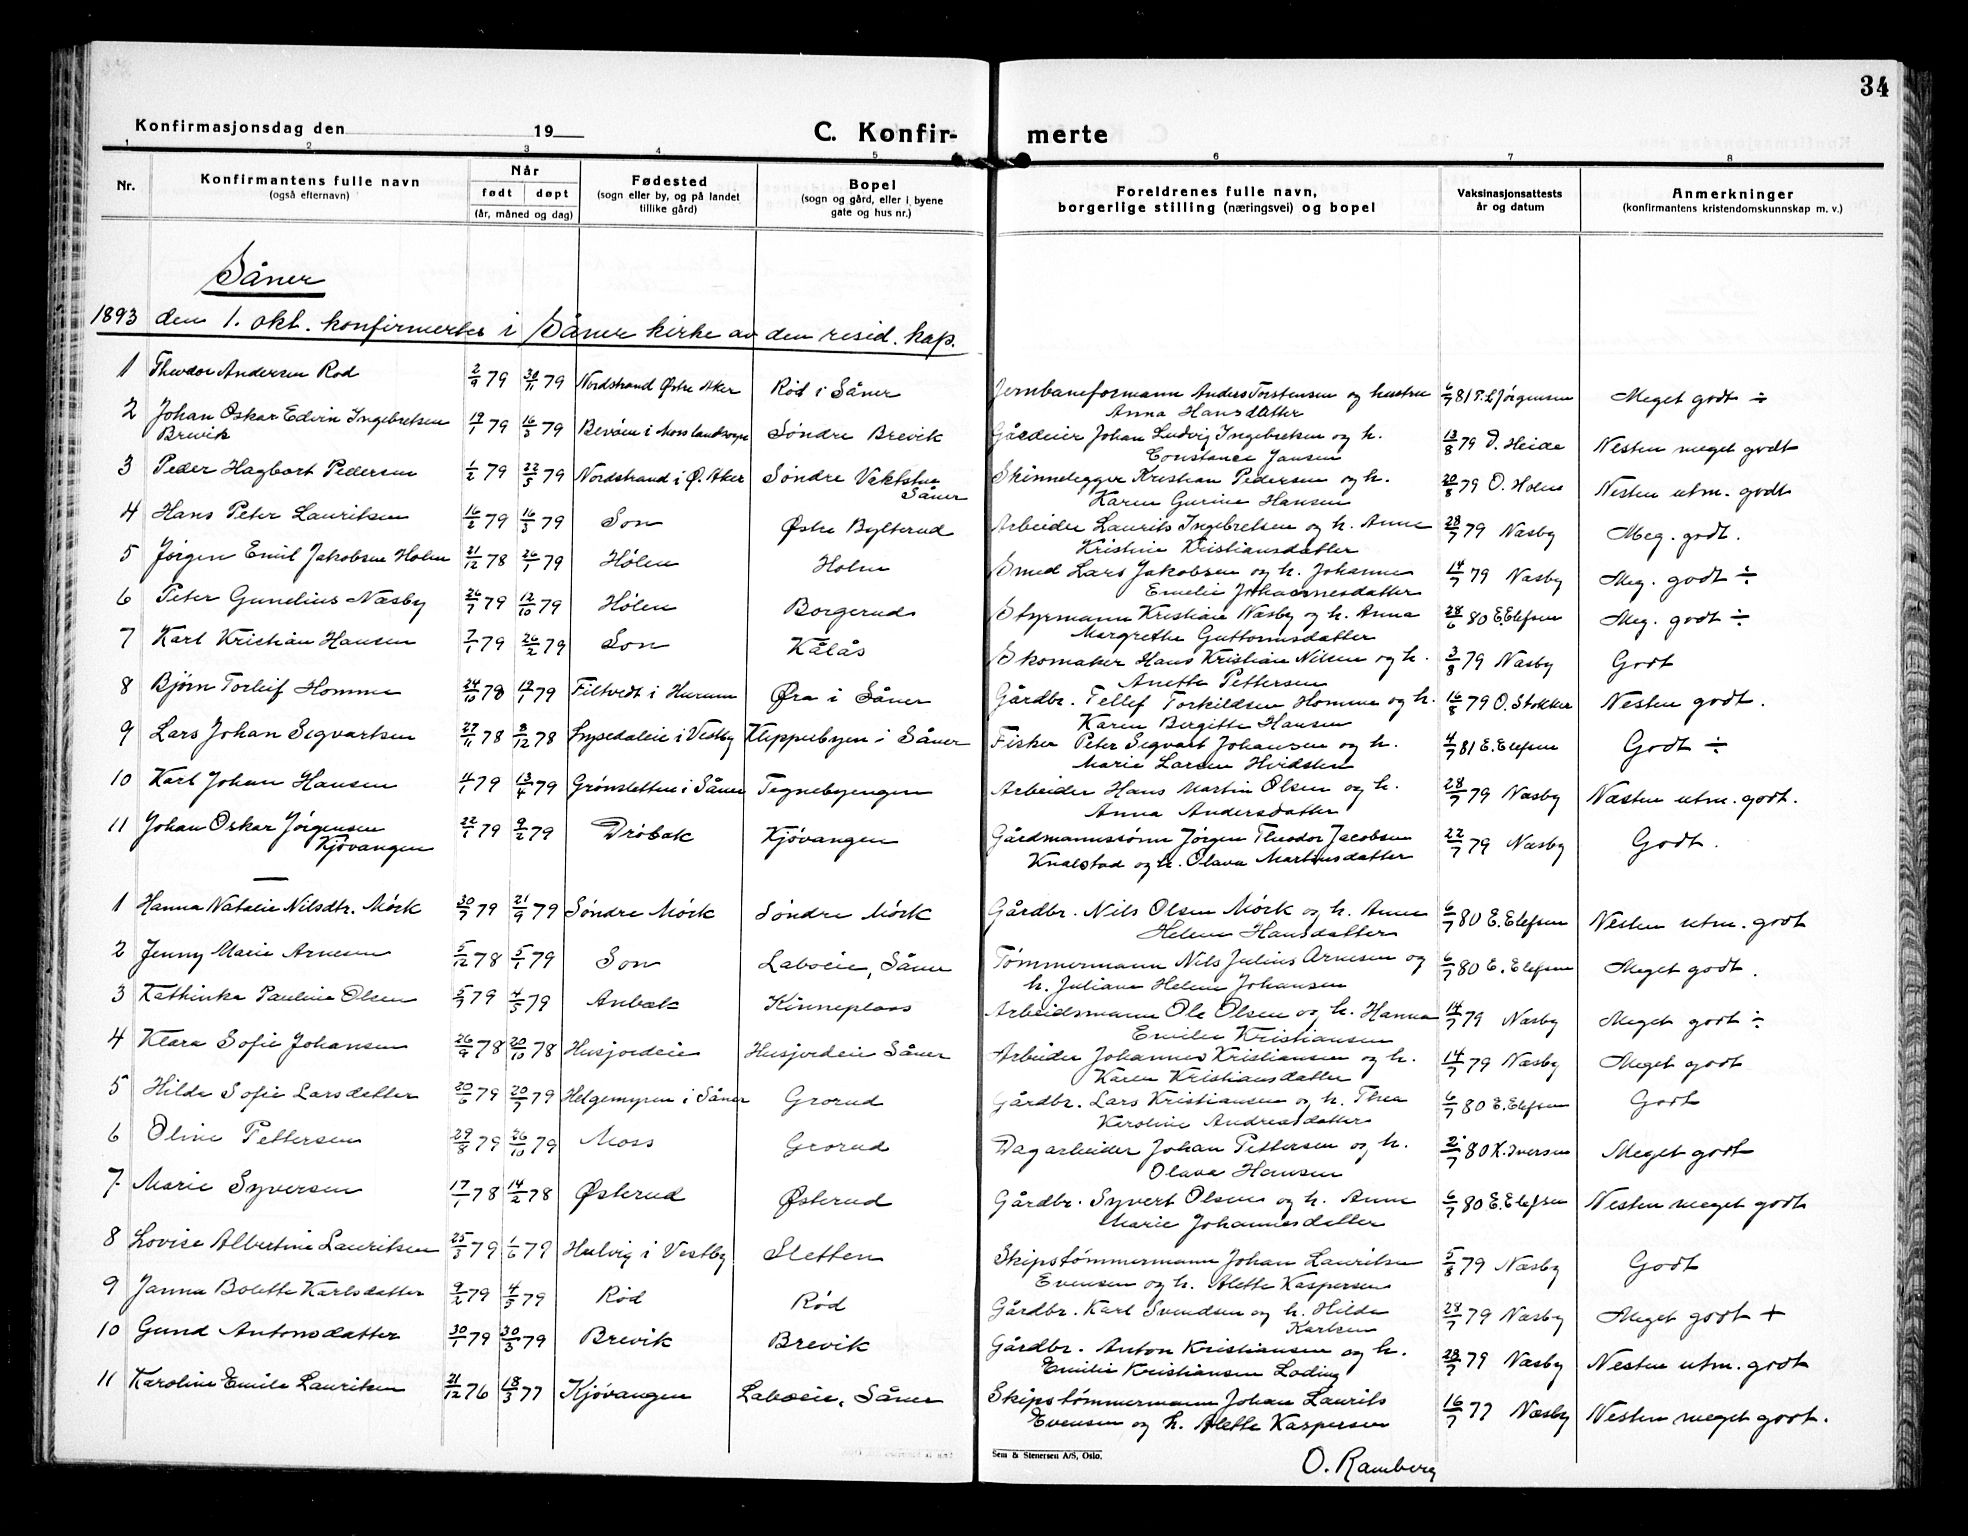 34
Konfirmasjonsdag den 19
C. Konfir- merte
1 2 3 4 5 6 7 8
Nr. Konfirmantens fulle navn (også efternavn) Når født døpt (år, måned og dag) Fødested (sogn eller by, og på landet tillike gård) Bopel (sogn og gård, eller i byene gate og hus nr.) Foreldrenes fulle navn, borgerlige stilling (næringsvei) og bopel Vaksinasjonsattests år og datum Anmerkninger (konfirmantens kristendomskunnskap m. v.)
Såner
1893 den 1. okt. konfirmertes i Såner kirke av den resid. kap.
1 Theodor Andersen Rød 2/9 79 30/11 79 Nordstrand Østre Aker Rød i Såner Jernbaneformann Anders Torstensen og hustru
Anna Hansdatter 6/7 81 P.L. Jørgensen Meget godt ÷
2 Johan Oskar Edvin Ingebretsen
Brevik 19/1 79 16/3 79 Bevøen i Moss landsogn Søndre Brevik Gårdeier Johan Ludvig Ingebretsen og h.
Constance Jansen 13/8 79 D. Heide Nesten meget godt
3 Peder Hagbart Pedersen 1/2 79 22/5 79 Nordstrand i Ø. Aker Søndre Vaktstue
Såner Skinnelegger Kristian Pedersen og h.
Karen Gurine Hansen 20/8 79 O. Holm Nesten utm. godt
4 Hans Peter Lauritsen 16/2 79 16/3 79 Son Østre Bylterud Arbeider Laurits Ingebretsen og h. Anne
Kristine Kristiansdatter 28/7 79 Næsby Meg. godt.
5 Jørgen Emil Jakobsen Holm 21/12 78 26/1 79 Hølen Holm Smed Lars Jakobsen og h. Johanne
Emilie Johannesdatter 14/7 79 Næsby Meg. godt ÷
6 Peter Gunelius Næsby 26/7 79 12/10 79 Hølen Borgerud Styrmann Kristian Næsby og h. Anna
Margrethe Guttormsdatter 28/6 80 E. Elefsen Meg. godt ÷
7 Karl Kristian Hansen 7/1 79 26/2 79 Son Kålås Skomaker Hans Kristian Nilsen og h.
Anette Pettersen 3/8 79 Næsby Godt
8 Bjørn Torleif Homme 24/10 78 19/1 79 Filtvedt i Hurum Øra i Såner Gårdbr. Tellef Torkildsen Homme og h.
Karen Bergitte Hansen 16/8 79 O. Stokker Nesten godt.
9 Lars Johan Segvartsen 27/11 78 8/12 78 Lysedaleie i Vestby Klepperbyen i Såner Fisker Peter Segvart Johansen og h.
Marie Larsen Hvidsten 4/7 81 E. Elefsen Godt ÷
10 Karl Johan Hansen 4/1 79 13/4 79 Grønsletten i Såner Tegnebyengen Arbeider Hans Martin Olsen og h.
Anna Andersdatter 28/7 79 Næsby Næsten utm. godt.
11 Johan Oskar Jørgensen
Kjøvangen 22/1 79 9/2 79 Drøbak Kjøvangen Gårdmannssønn Jørgen Theodor Jacobsen
Knalstad og h. Olava Martinusdatter 22/7 79 Næsby Godt.
1 Hanna Natalie Nilsdtr. Mørk 30/7 79 21/9 79 Søndre Mørk Søndre Mørk Gårdbr. Nils Olsen Mørk og h. Anne
Helene Hansdatter 6/7 80 E. Elefsen Nesten utm. godt
2 Jenny Marie Arnesen 5/12 78 5/1 79 Son Laboeie, Såner Tømmermann Nils Julius Arnesen og
h. Juliane Helene Johansen 6/7 80 E. Elefsen Meget godt.
3 Kathinka Pauline Olsen 5/7 79 4/5 79 Anbæk Kinneplass Arbeidsmann Ole Olsen og h. Hanna
Emilie Kristiansen 14/7 79 Næsby Meget godt ÷
4 Klara Sofie Johansen 26/9 78 20/10 78 Husjordeie Husjordeie Såner Arbeider Johannes Kristiansen og h.
Karen Kristiansdatter 14/7 79 Næsby Meget godt
5 Hilda Sofie Larsdatter 20/6 79 20/7 79 Helgemyren i Såner Grorud Gårdbr. Lars Kristiansen og h. Thea
Karoline Andreasdatter 6/7 80 E. Elefsen Godt
6 Oline Pettersen 29/8 79 26/10 79 Moss Grorud Dagarbeider Johan Pettersen og h.
Olava Hansen 2/7 80 K. Iversen Meget godt
7 Marie Syversen 17/1 78 14/2 78 Østerud Østerud Gårdbr. Syvert Olsen og h. Anne
Marie Johannesdatter 6/7 80 E. Elefsen Nesten meget godt
8 Lovise Albertine Lauritsen 25/3 79 1/6 79 Hulvig i Vestby Sletten Skipstømmermann Johan Lauritsen
Evensen og h. Alette Kaspersen 5/8 79 Næsby Godt
9 Janna Bolette Karlsdatter 9/2 79 4/5 79 Rød Rød Gårdbr. Karl Svendsen og h. Hilda
Karlsen 28/7 79 Næsby Meget godt +
10 Gund Antonsdatter 30/1 79 30/3 79 Brevik Brevik Gårdbr. Anton Kristiansen og h.
Emilie Kristiansen Loding 28/7 79 Næsby Nesten utm. godt
11 Karoline Emile Lauritsen 21/12 76 18/3 77 Kjøvangen Laboeie, Såner Skipstømmermann Johan Laurits
Evensen og h. Alette Kaspersen 16/7 77 Næsby Nesten meget godt.
Sem & Stenersen A/S, Oslo.
O. Ramberg